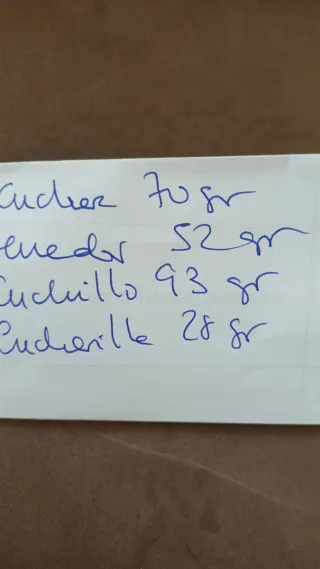 Cuchar 70 gr
enedor 52 gr
Cuchillo 93 gr
Cucharilla 28 gr